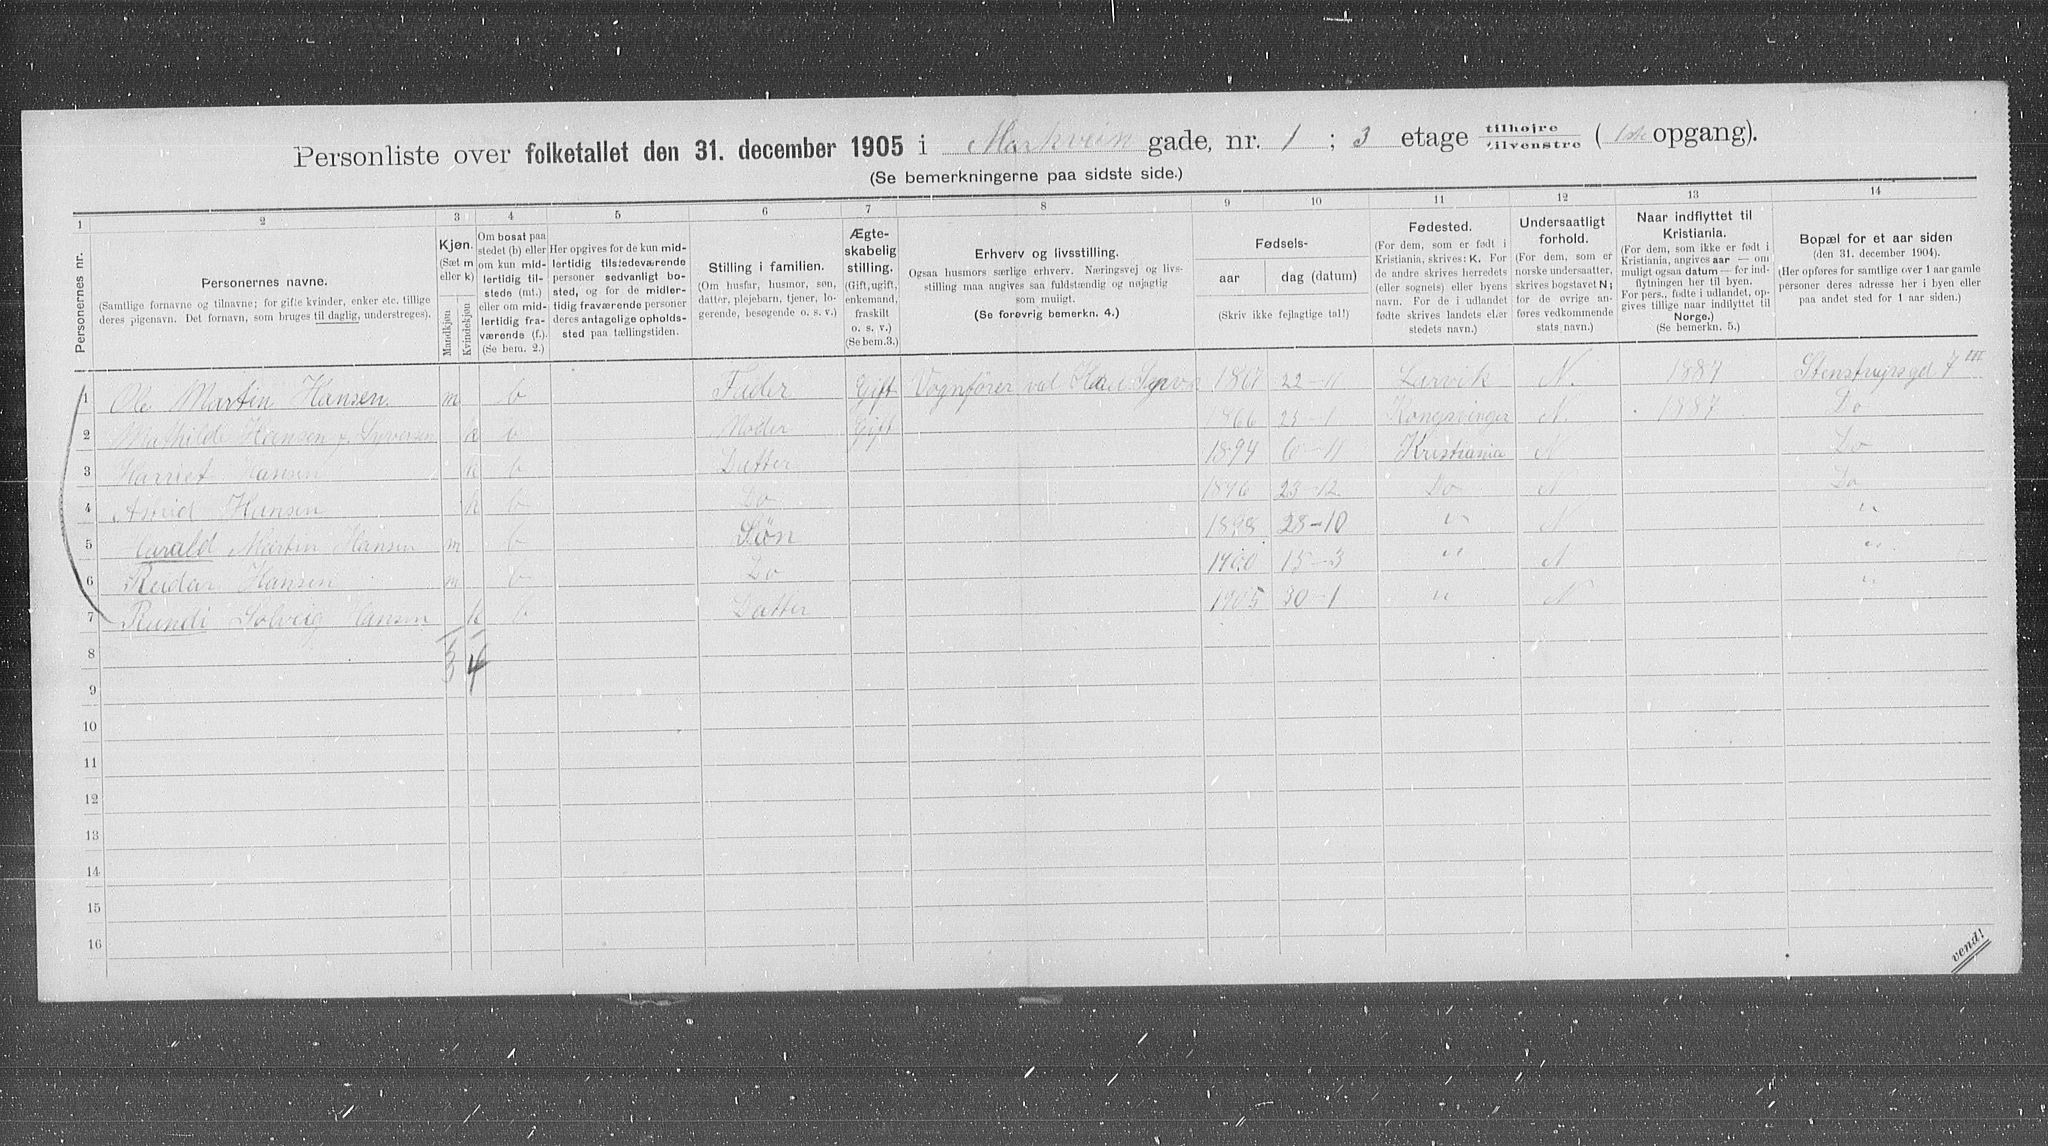 Personliste over folketallet den 31. december 1905 i Markveien gade, nr. 1 ; 3 etage tilhøjre / tilvenstre (1ste opgang).
(Se bemerkningerne paa sidste side.)
1 2 3 4 5 6 7 8 9 10 11 12 13 14
Personernes nr.
Personernes navne.
(Samtlige fornavne og tilnavne; for gifte kvinder, enker etc. tillige deres pigenavn. Det fornavn, som bruges til daglig, understreges).
Kjøn.
(Sæt m eller k)
Mandkjøn
Kvindekjøn
Om bosat paa stedet (b) eller om kun midlertidig tilstede (mt.) eller om midlertidig fraværende (f.). (Se bem. 2.)
Her opgives for de kun midlertidig tilstedeværende personer sedvanligt bosted, og for de midlertidig fraværende personer deres antagelige opholdssted paa tællingstiden.
Stilling i familien.
(Om husfar, husmor, søn, datter, plejebarn, tjener, logerende, besøgende o. s. v.)
Ægteskabelig stilling.
(Gift, ugift, enkemand, fraskilt o. s. v.)
(Se bem.3.)
Erhverv og livsstilling.
Ogsaa husmors særlige erhverv. Næringsvej og livsstilling maa angives saa fuldstændig og nøjagtig som muligt.
(Se forøvrig bemerkn. 4.)
Fødsels-
aar
dag (datum)
(Skriv ikke fejlagtige tal!)
Fødested.
(For dem, som er født i Kristiania, skrives: K. For de andre skrives herredets (eller sognets) eller byens navn. For de i udlandet fødte skrives landets eller stedets navn.)
Undersaatligt forhold.
(For dem, som er norske undersaatter, skrives bogstavet N; for de øvrige anføres vedkommende stats navn.)
Naar indflyttet til Kristiania.
(For dem, som ikke er født i Kristiania, angives aar — om muligt ogsaa datum — for indflytningen her til byen. For pers., fødte i udlandet, opgives tillige naar indflyttet til Norge.)
(Se bemerkn. 5.)
Bopæl for et aar siden
(den 31. december 1904).
(Her opføres for samtlige over 1 aar gamle personer deres adresse her i byen eller paa andet sted for 1 aar siden.)
1 Ole Martin Hansen. m b Fader Gift Vognfører 1867 22-11 Larvik N. 1887 Stenstrupsgd 7 III
2 Mathilde Hansen f. Syversen k b Moder Gift 1866 23-1 Kongsvinger N. 1887 Do
3 Harriet Hansen k b Datter 1894 6-11 Kristiania N Do
4 Astrid Hansen k b Do 1896 23-12 Do N Do
5 Harald Martin Hansen m b Søn 1898 28-10 " N "
6 Reidar Hansen m b Do 1900 15-3 " N "
7 Rundi Solveig Hansen k b Datter 1905 30-1 " N "
8 3 4
9
10
11
12
13
14
15
16
vend!